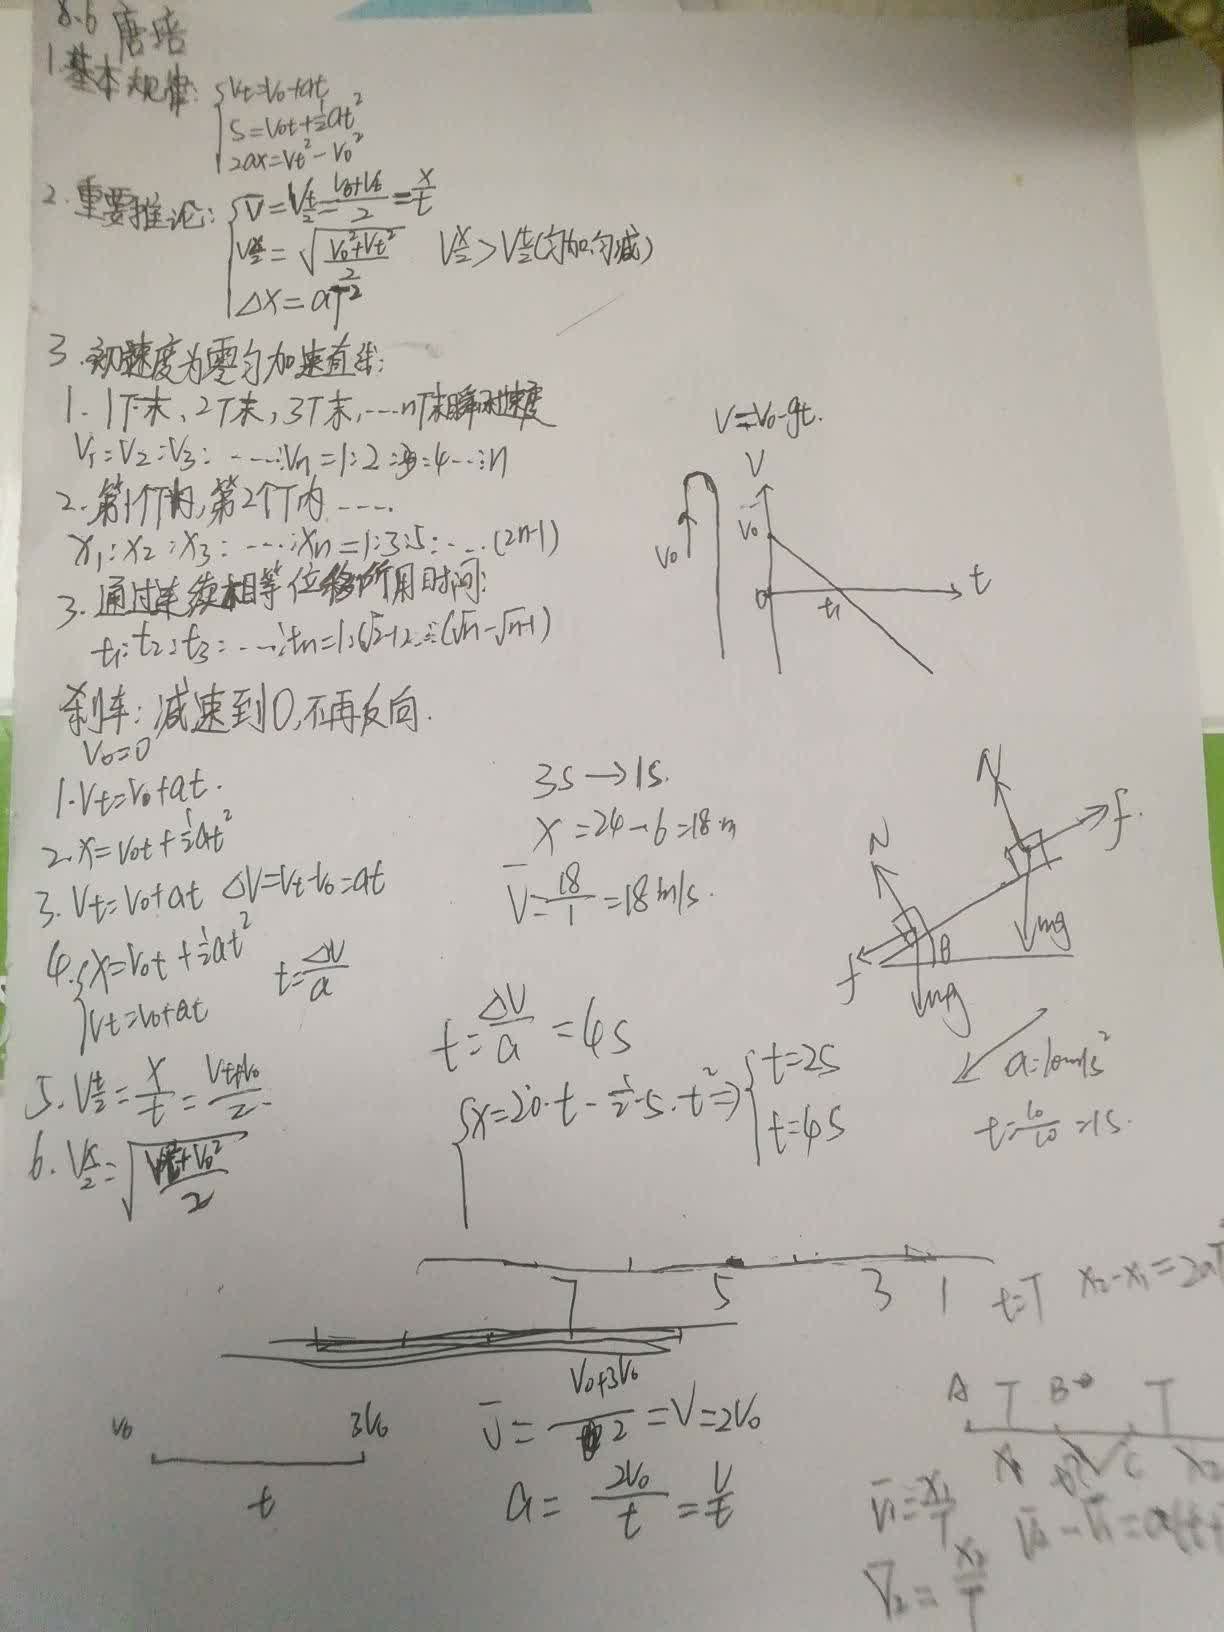 8.6 唐培
1.基本规律: Vt=V0+at
S=V0t+½at²
2ax=Vt²-V0²
2.重要推论: V̄=Vt/2=(V0+Vt)/2=x/t
Vx/2=√((V0²+Vt²)/2) Vx/2>Vt/2(匀加匀减)
ΔX=aT²
3.初速度为零匀加速直线:
1.1T末、2T末,3T末,……nT末瞬时速度
V1:V2:V3:……:Vn=1:2:3:4…:n
2.第1个T内,第2个T内……
X1:X2:X3:……:Xn=1:3:5:……(2n-1)
3.通过连续相等位移所用时间:
t1:t2:t3:……:tn=1:(√2-1)…:(√n-√n-1)
刹车:减速到0,不再反向.
V0=0
1.Vt=V0+at.
2.x=V0t+½at²
3.Vt=V0+at ΔV=Vt-V0=at
4.x=V0t+½at²
Vt=V0+at
t=ΔV/a
5.Vt/2=x/t=(Vt+V0)/2
6.Vx/2=√((Vt²+V0²)/2)
V=V0-gt.
V
V0
V0
0
t1
t
3S→1S.
X=24-6=18m
V̄=18/1=18m/s.
N
f.
N
mg
θ
f
mg
t=ΔV/a=4S
x=20·t-½·5·t²⇒ t=2S
t=4S
a=10m/s²
t=10/10=1S.
7 5 3 1
t=T X2-X1=2aT
V0 3V0
t
V̄=(V0+3V0)/2=V=2V0
a=2V0/t=V/t
A T B T
C X2
V̄1=X1/T
V̄2=X2/T